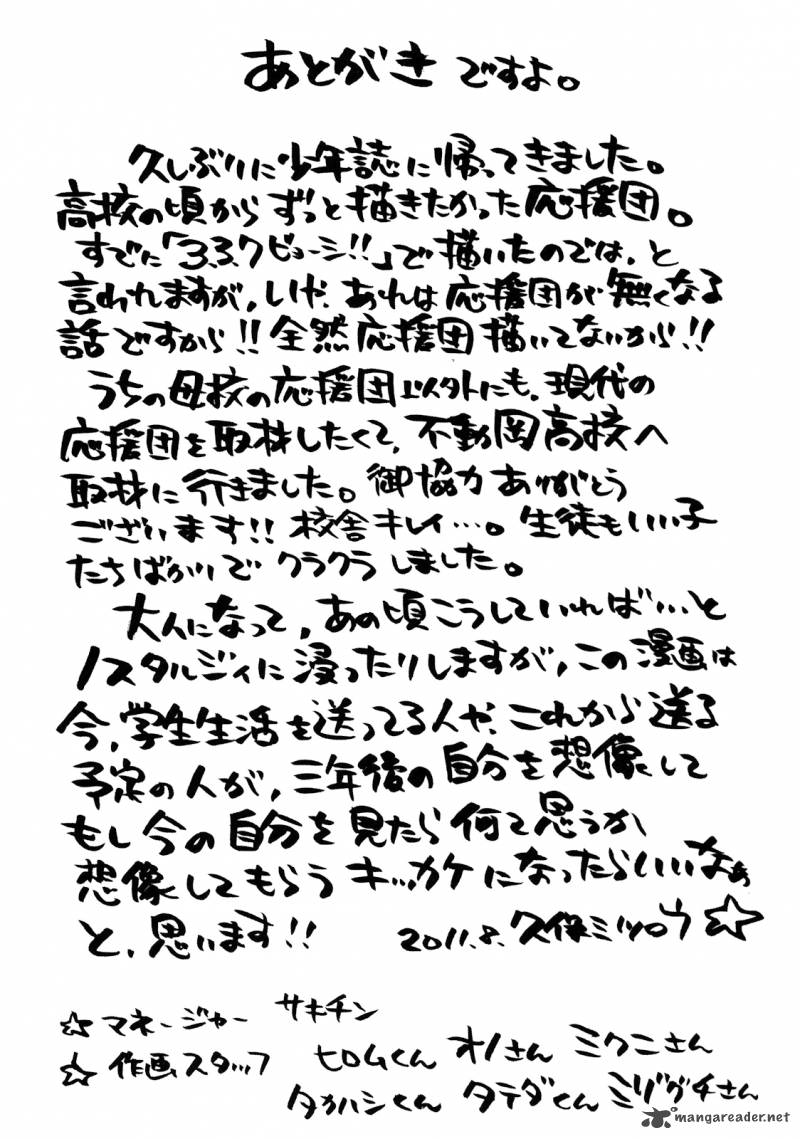 あとがきですよ。
久しぶりに少年誌に帰ってきました。
高校の頃からずっと描きたかった応援団。
すでに「3.3.7ビョーシ!!」で描いたのでは、と
言われますが、いや、あれは応援団が無くなる
話ですから!!全然応援団描いてないから!!
うちの母校の応援団以外にも、現代の
応援団を取材したくて、不動岡高校へ
取材に行きました。御協力ありがとう
ございます!!校舎キレイ…。生徒もいい子
たちばかりでクラクラしました。
大人になって、あの頃こうしていれば…と
ノスタルジィに浸ったりしますが、この漫画は
今、学生生活を送ってる人や、これから送る
予定の人が、三年後の自分を想像して
もし今の自分を見たら何て思うか
想像してもらうキッカケになったらいいなぁ
と、思います!! 2011.8.久保ミツロウ☆
☆マネージャー サキチン
☆作画スタッフ ヒロムくん オノさん ミクニさん
タカハシくん タテダくん ミゾグチさん
mangareader.net